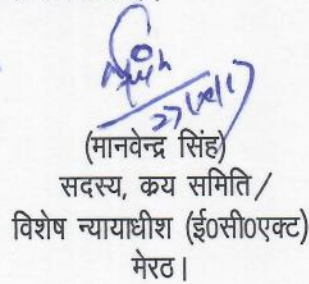 (मानवेन्द्र सिंह)
सदस्य, कय समिति /
विशेष न्यायाधीश (ई०सी०एक्ट)
मेरठ।